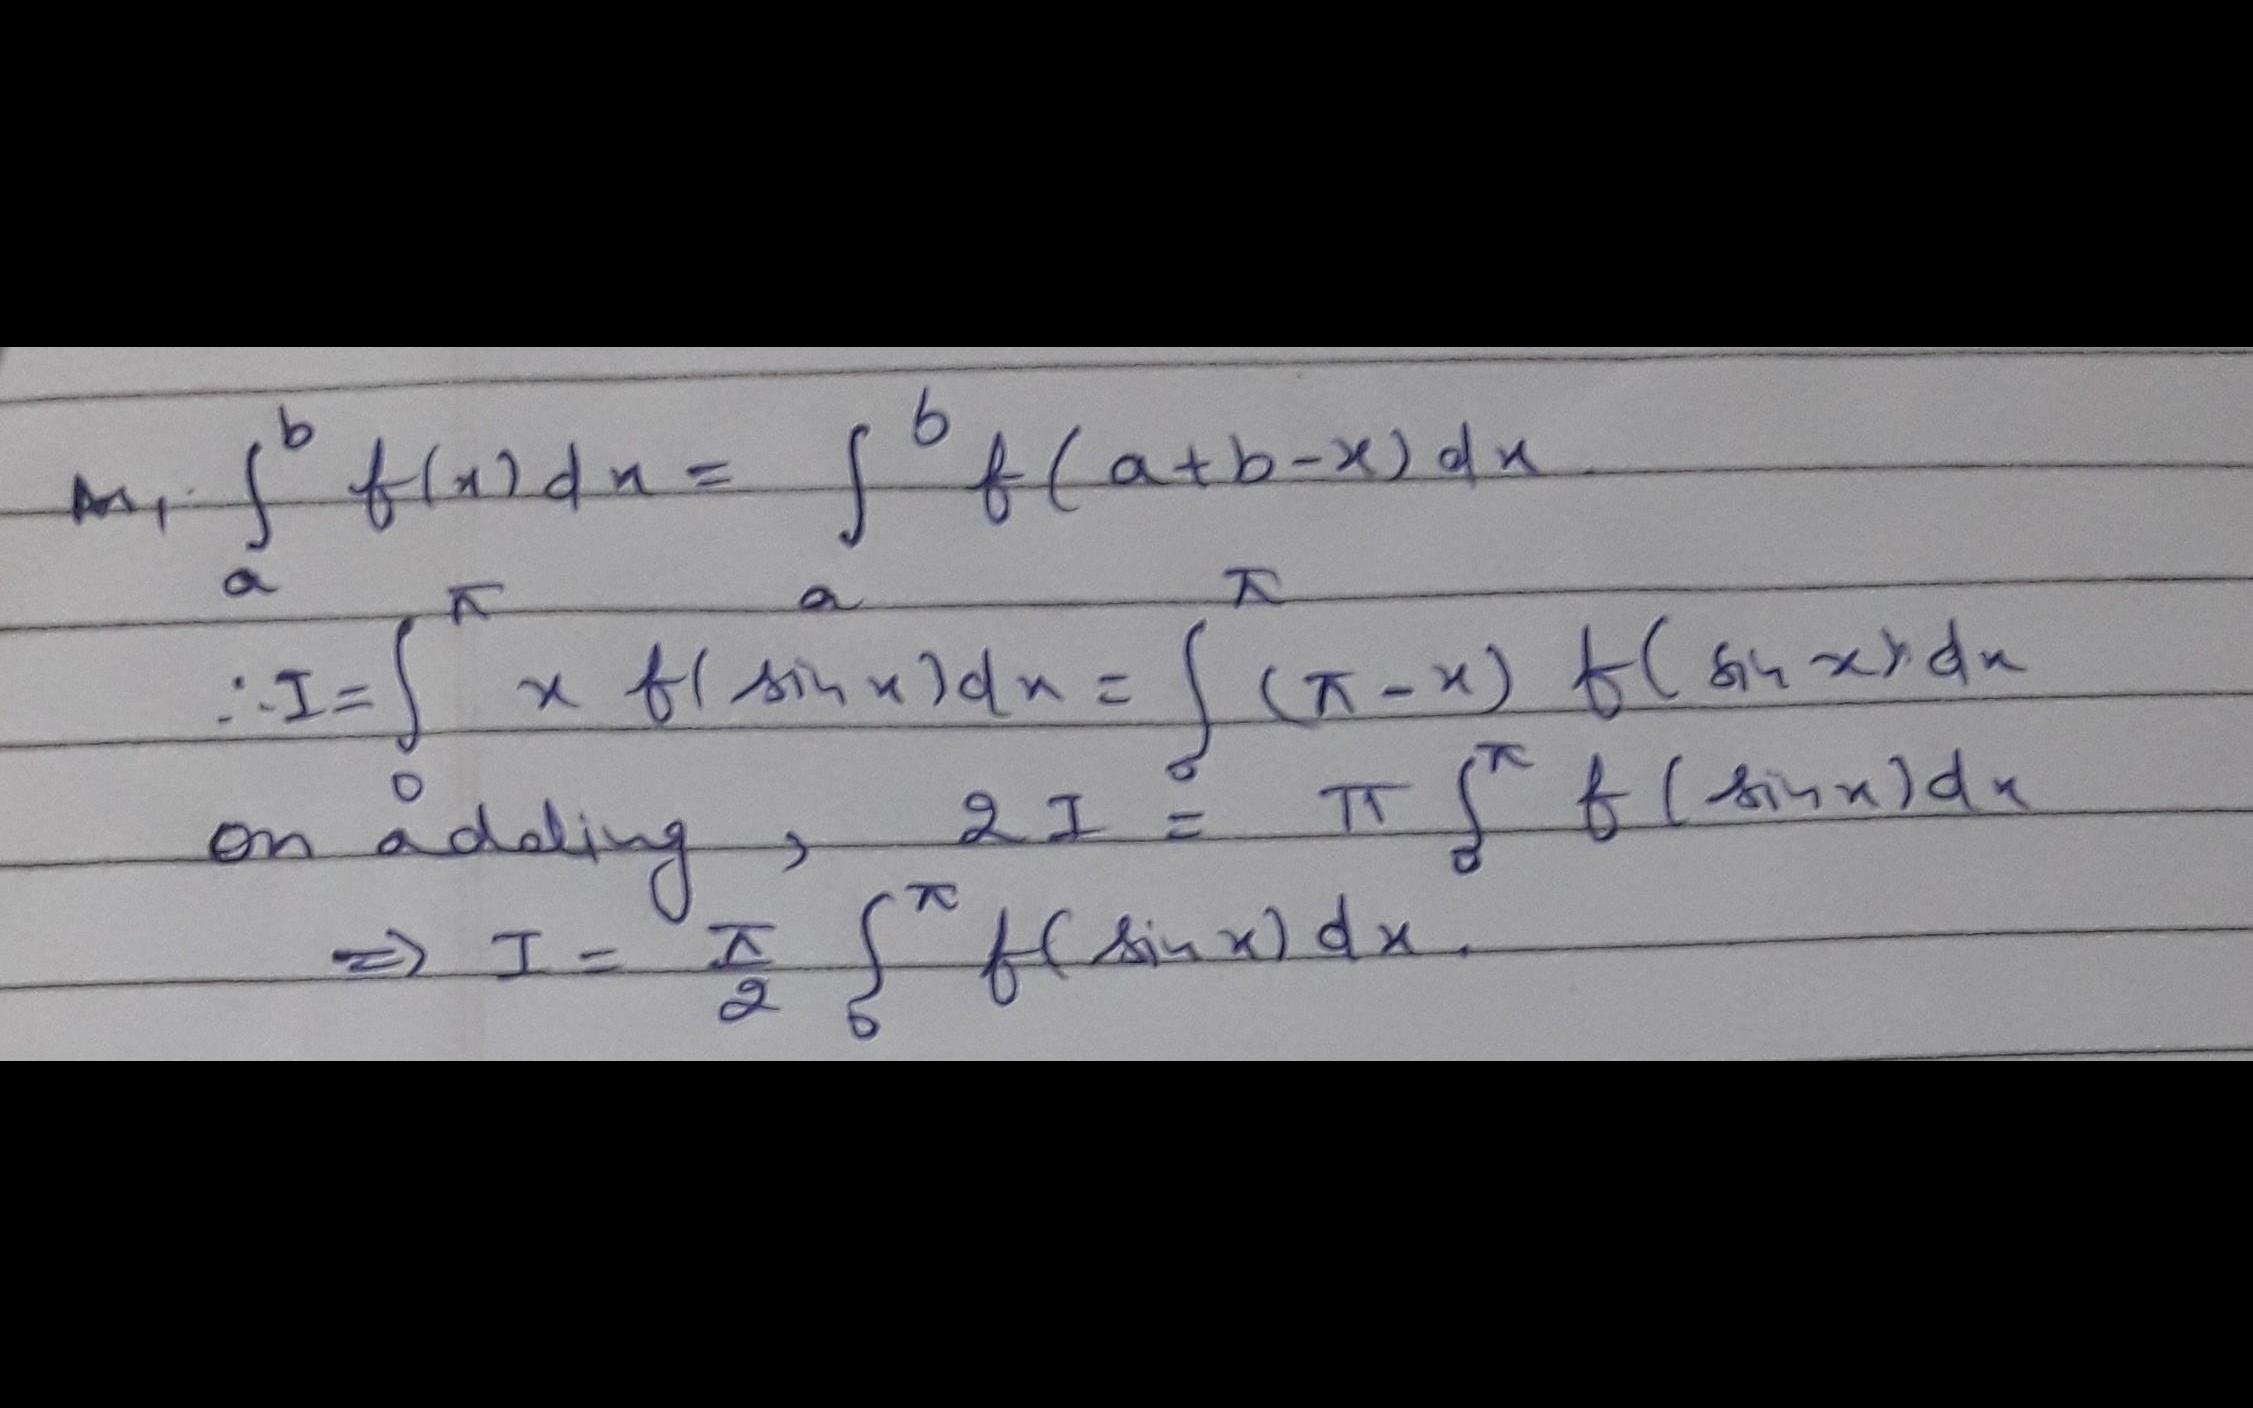 Ans, ∫_a^b f(x) dx = ∫_a^b f(a+b-x) dx
∴ I = ∫_0^π x f(sin x) dx = ∫_0^π (π - x) f(sin x) dx
on adding, 2I = π ∫_0^π f(sin x) dx
⇒ I = π/2 ∫_0^π f(sin x) dx.